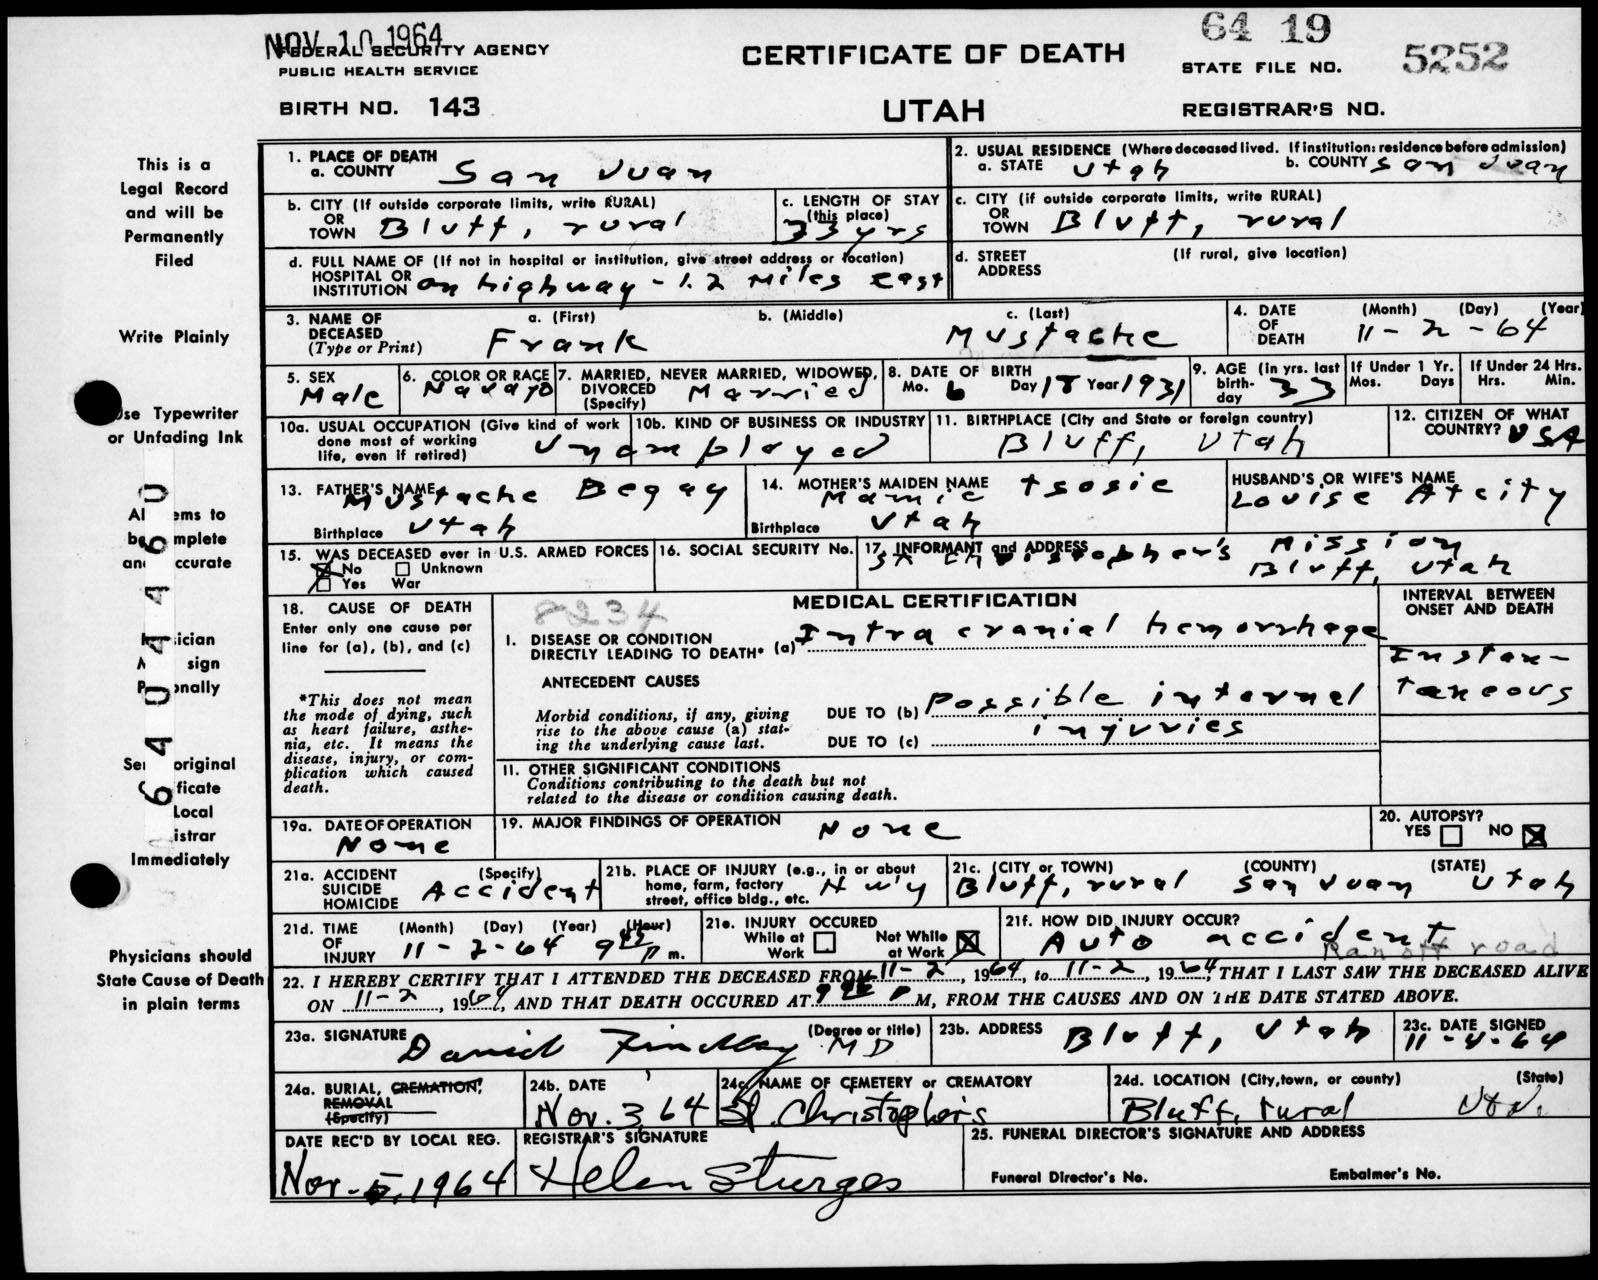 NOV 10 1964
64 19
FEDERAL SECURITY AGENCY
PUBLIC HEALTH SERVICE
CERTIFICATE OF DEATH
STATE FILE NO. 5252
BIRTH NO. 143
UTAH
REGISTRAR'S NO.
This is a
Legal Record
and will be
Permanently
Filed
Write Plainly
Use Typewriter
or Unfading Ink
All ems to
be mplete
and ccurate
ician
sign
onally
original
ficate
Local
istrar
Immediately
64 04460
Physicians should
State Cause of Death
in plain terms
1. PLACE OF DEATH
a. COUNTY San Juan
2. USUAL RESIDENCE (Where deceased lived. If institution: residence before admission)
a. STATE Utah b. COUNTY San Juan
b. CITY (If outside corporate limits, write RURAL)
OR
TOWN Bluff, rural
c. LENGTH OF STAY
(this place)
33 yrs
c. CITY (if outside corporate limits, write RURAL)
OR
TOWN Bluff, rural
d. FULL NAME OF (If not in hospital or institution, give street address or location)
HOSPITAL OR
INSTITUTION on highway - 1.2 miles east
d. STREET (If rural, give location)
ADDRESS
3. NAME OF DECEASED
(Type or Print)
a. (First) b. (Middle) c. (Last)
Frank Mustache
4. DATE OF DEATH
(Month) (Day) (Year)
11-2-64
5. SEX
Male
6. COLOR OR RACE
Navajo
7. MARRIED, NEVER MARRIED, WIDOWED,
DIVORCED
(Specify) Married
8. DATE OF BIRTH
Mo. 6 Day 18 Year 1931
9. AGE (in yrs. last
birth-
day 33
If Under 1 Yr.
Mos. Days
If Under 24 Hrs.
Hrs. Min.
10a. USUAL OCCUPATION (Give kind of work
done most of working
life, even if retired)
10b. KIND OF BUSINESS OR INDUSTRY
Unemployed
11. BIRTHPLACE (City and State or foreign country)
Bluff, Utah
12. CITIZEN OF WHAT
COUNTRY? USA
13. FATHER'S NAME
Mustache Begay
Birthplace Utah
14. MOTHER'S MAIDEN NAME
Mamie Tsosie
Birthplace Utah
HUSBAND'S OR WIFE'S NAME
Louise Atcity
15. WAS DECEASED ever in U.S. ARMED FORCES
☒ No ☐ Unknown
☐ Yes War
16. SOCIAL SECURITY No.
17. INFORMANT and ADDRESS
St. Christopher's Mission
Bluff, Utah
18. CAUSE OF DEATH
Enter only one cause per
line for (a), (b), and (c)
*This does not mean
the mode of dying, such
as heart failure, asthe-
nia, etc. It means the
disease, injury, or com-
plication which caused
death.
8234
MEDICAL CERTIFICATION
INTERVAL BETWEEN
ONSET AND DEATH
I. DISEASE OR CONDITION
DIRECTLY LEADING TO DEATH* (a) Intra cranial hemorrhage
Instan-
taneous
ANTECEDENT CAUSES
Morbid conditions, if any, giving
rise to the above cause (a) stat-
ing the underlying cause last.
DUE TO (b) Possible internal
DUE TO (c) injuries
11. OTHER SIGNIFICANT CONDITIONS
Conditions contributing to the death but not
related to the disease or condition causing death.
19a. DATE OF OPERATION
None
19. MAJOR FINDINGS OF OPERATION
None
20. AUTOPSY?
YES ☐ NO ☒
21a. ACCIDENT (Specify)
SUICIDE
HOMICIDE
Accident
21b. PLACE OF INJURY (e.g., in or about
home, farm, factory
street, office bldg., etc. Hwy
21c. (CITY or TOWN) (COUNTY) (STATE)
Bluff, rural San Juan Utah
21d. TIME OF INJURY
(Month) (Day) (Year) (Hour)
11-2-64 9 45 P m.
21e. INJURY OCCURED
While at Work ☐ Not While at Work ☒
21f. HOW DID INJURY OCCUR?
Auto accident
Ran off road
22. I HEREBY CERTIFY THAT I ATTENDED THE DECEASED FROM 11-2, 1964, to 11-2, 1964, THAT I LAST SAW THE DECEASED ALIVE
ON 11-2, 1964, AND THAT DEATH OCCURED AT 9 45 P M, FROM THE CAUSES AND ON THE DATE STATED ABOVE.
23a. SIGNATURE (Degree or title)
David Findlay MD
23b. ADDRESS Bluff, Utah
23c. DATE SIGNED
11-4-64
24a. BURIAL, CREMATION,
REMOVAL
(Specify)
24b. DATE
Nov. 3, 64
24c. NAME OF CEMETERY or CREMATORY
St. Christopher's
24d. LOCATION (City, town, or county) (State)
Bluff, rural Utah
DATE REC'D BY LOCAL REG.
Nov. 5, 1964
REGISTRAR'S SIGNATURE
Helen Sturges
25. FUNERAL DIRECTOR'S SIGNATURE AND ADDRESS
Funeral Director's No. Embalmer's No.